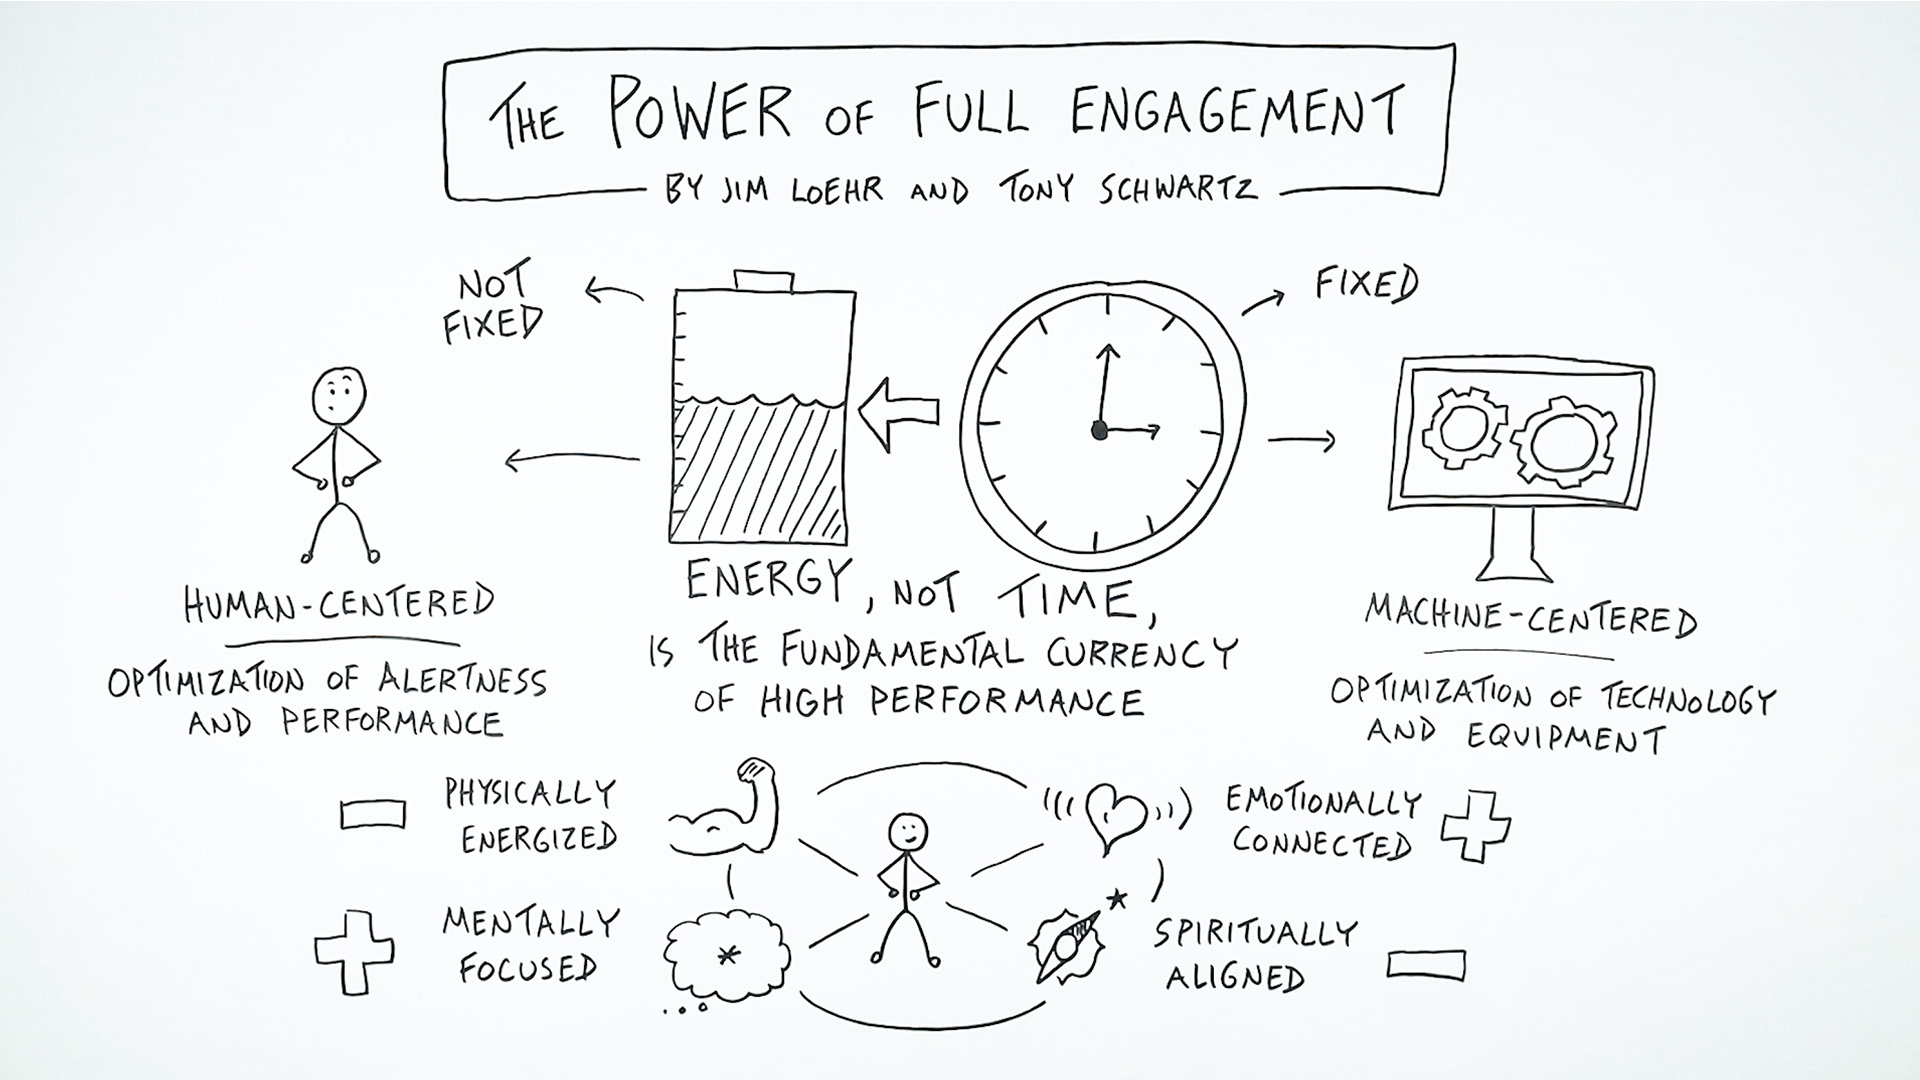 THE POWER OF FULL ENGAGEMENT
BY JIM LOEHR AND TONY SCHWARTZ
NOT
FIXED
FIXED
HUMAN-CENTERED
OPTIMIZATION OF ALERTNESS
AND PERFORMANCE
ENERGY, NOT TIME,
IS THE FUNDAMENTAL CURRENCY
OF HIGH PERFORMANCE
MACHINE-CENTERED
OPTIMIZATION OF TECHNOLOGY
AND EQUIPMENT
PHYSICALLY
ENERGIZED
EMOTIONALLY
CONNECTED
MENTALLY
FOCUSED
SPIRITUALLY
ALIGNED